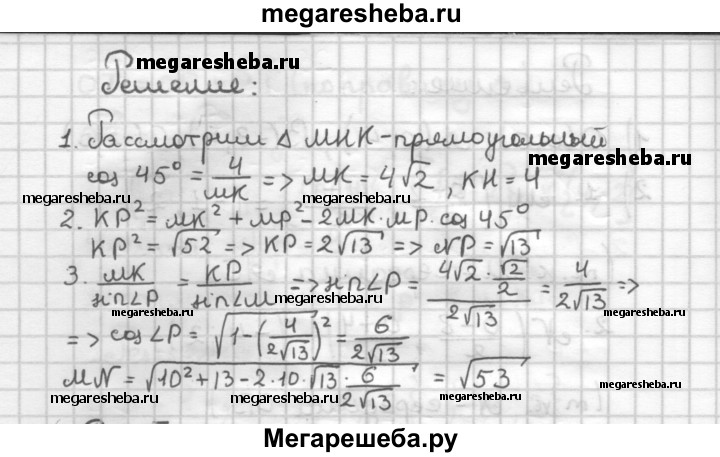 megaresheba.ru
megaresheba.ru
Решение:
1. Рассмотрим Δ МНК - прямоугольный
cos 45° = 4/МК => МК = 4√2, КН = 4
megaresheba.ru megaresheba.ru
2. КР² = МК² + МР² - 2МК·МР·cos 45°
КР² = √52 => КР = 2√13 => NP = √13
3. МК/sin∠P = КР/sin∠М => sin∠P = (4√2 · √2/2)/(2√13) = 4/(2√13) =>
megaresheba.ru megaresheba.ru
=> cos∠P = √(1 - (4/(2√13))²) = 6/(2√13)
MN = √(10² + 13 - 2·10·√13 · 6/(2√13)) = √53
megaresheba.ru megaresheba.ru megaresheba.ru
Мегарешеба.ру